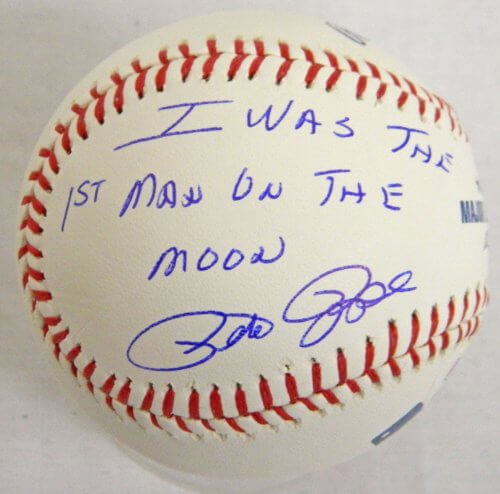 I WAS THE
1ST MAN ON THE
MOON
Pete Rose
MAJO